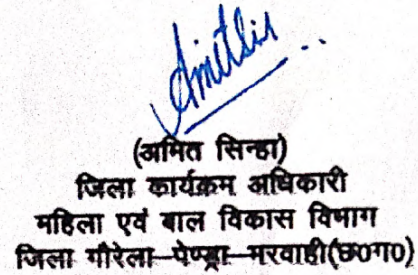 (अमित सिन्हा)
जिला कार्यक्रम अधिकारी
महिला एवं बाल विकास विभाग
जिला गौरेला-पेण्ड्रा-मरवाही(छ0ग0)